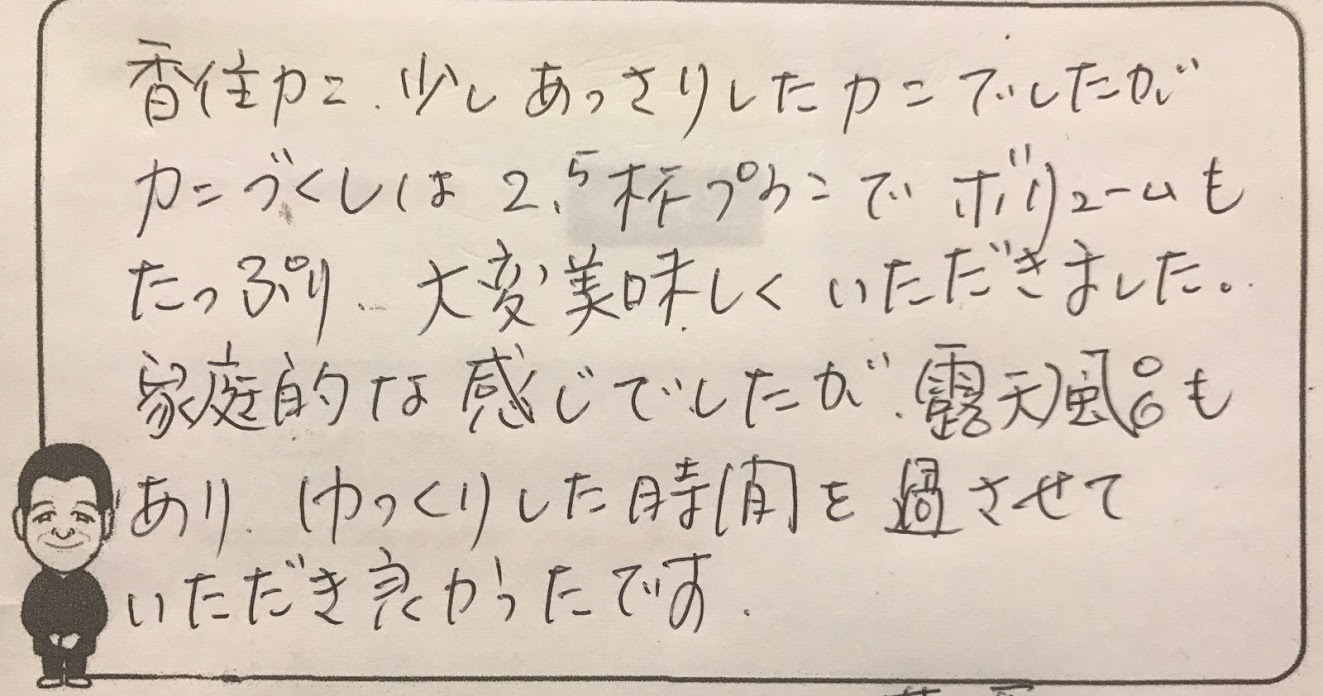 香住カニ、少しあっさりしたカニでしたが
カニづくしは2.5杯プランでボリュームも
たっぷり、大変美味しくいただきました。
家庭的な感じでしたが、露天風呂も
あり、ゆっくりした時間を過させて
いただき良かったです。